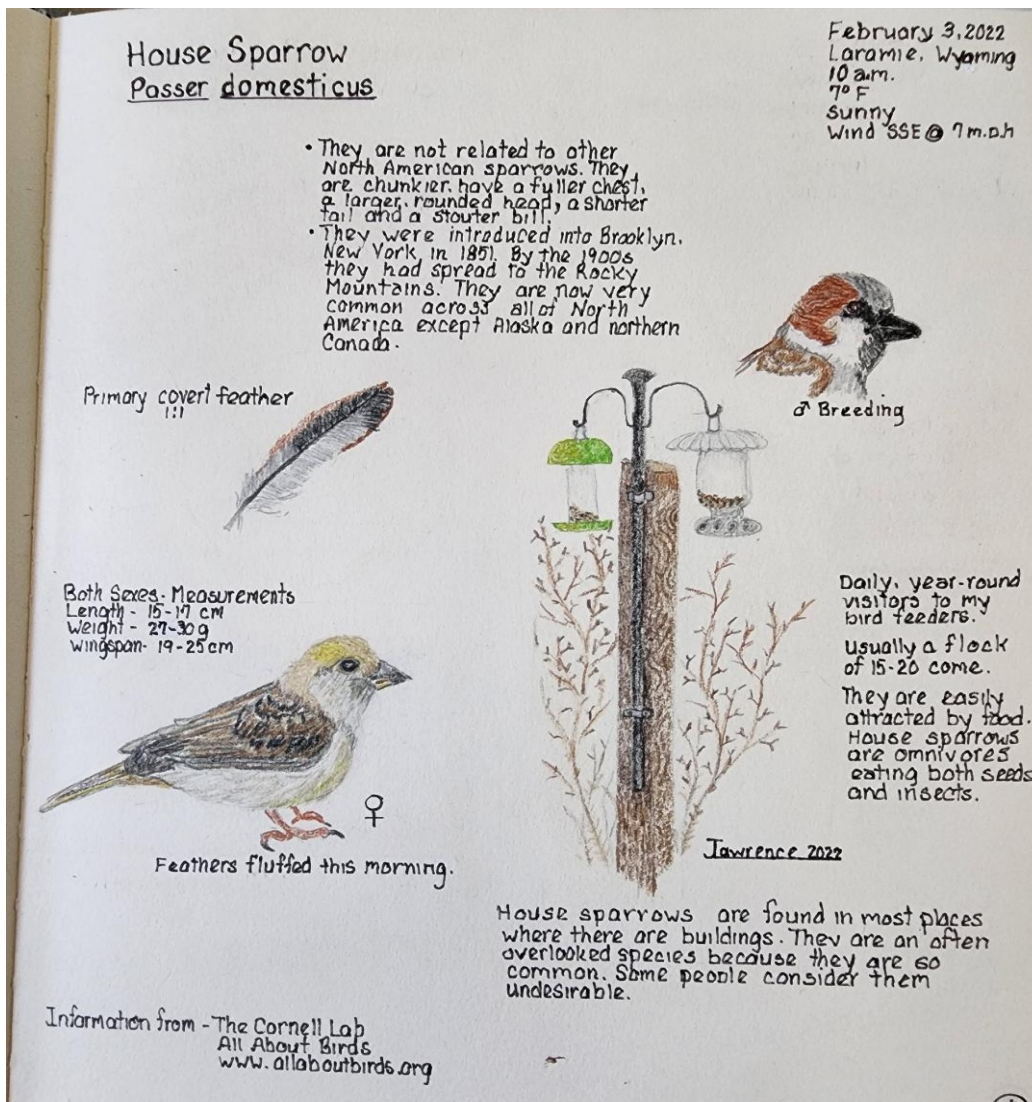 House Sparrow
Passer domesticus
February 3, 2022
Laramie, Wyoming
10 a.m.
7° F
Sunny
Wind SSE @ 7 m.p.h
• They are not related to other
North American sparrows. They
are chunkier, have a fuller chest,
a larger, rounded head, a shorter
tail and a stouter bill.
• They were introduced into Brooklyn,
New York, in 1851. By the 1900s
they had spread to the Rocky
Mountains. They are now very
common across all of North
America except Alaska and northern
Canada.
♂ Breeding
Primary covert feather
1:1
Both Sexes - Measurements
Length - 15-17 cm
Weight - 27-30 g
Wingspan - 19-25 cm
♀
Feathers fluffed this morning.
Daily, year-round
visitors to my
bird feeders.
Usually a flock
of 15-20 come.
They are easily
attracted by food.
House sparrows
are omnivores
eating both seeds
and insects.
2022
House sparrows are found in most places
where there are buildings. They are an often
overlooked species because they are so
common. Some people consider them
undesirable.
Information from - The Cornell Lab
All About Birds
www.allaboutbirds.org